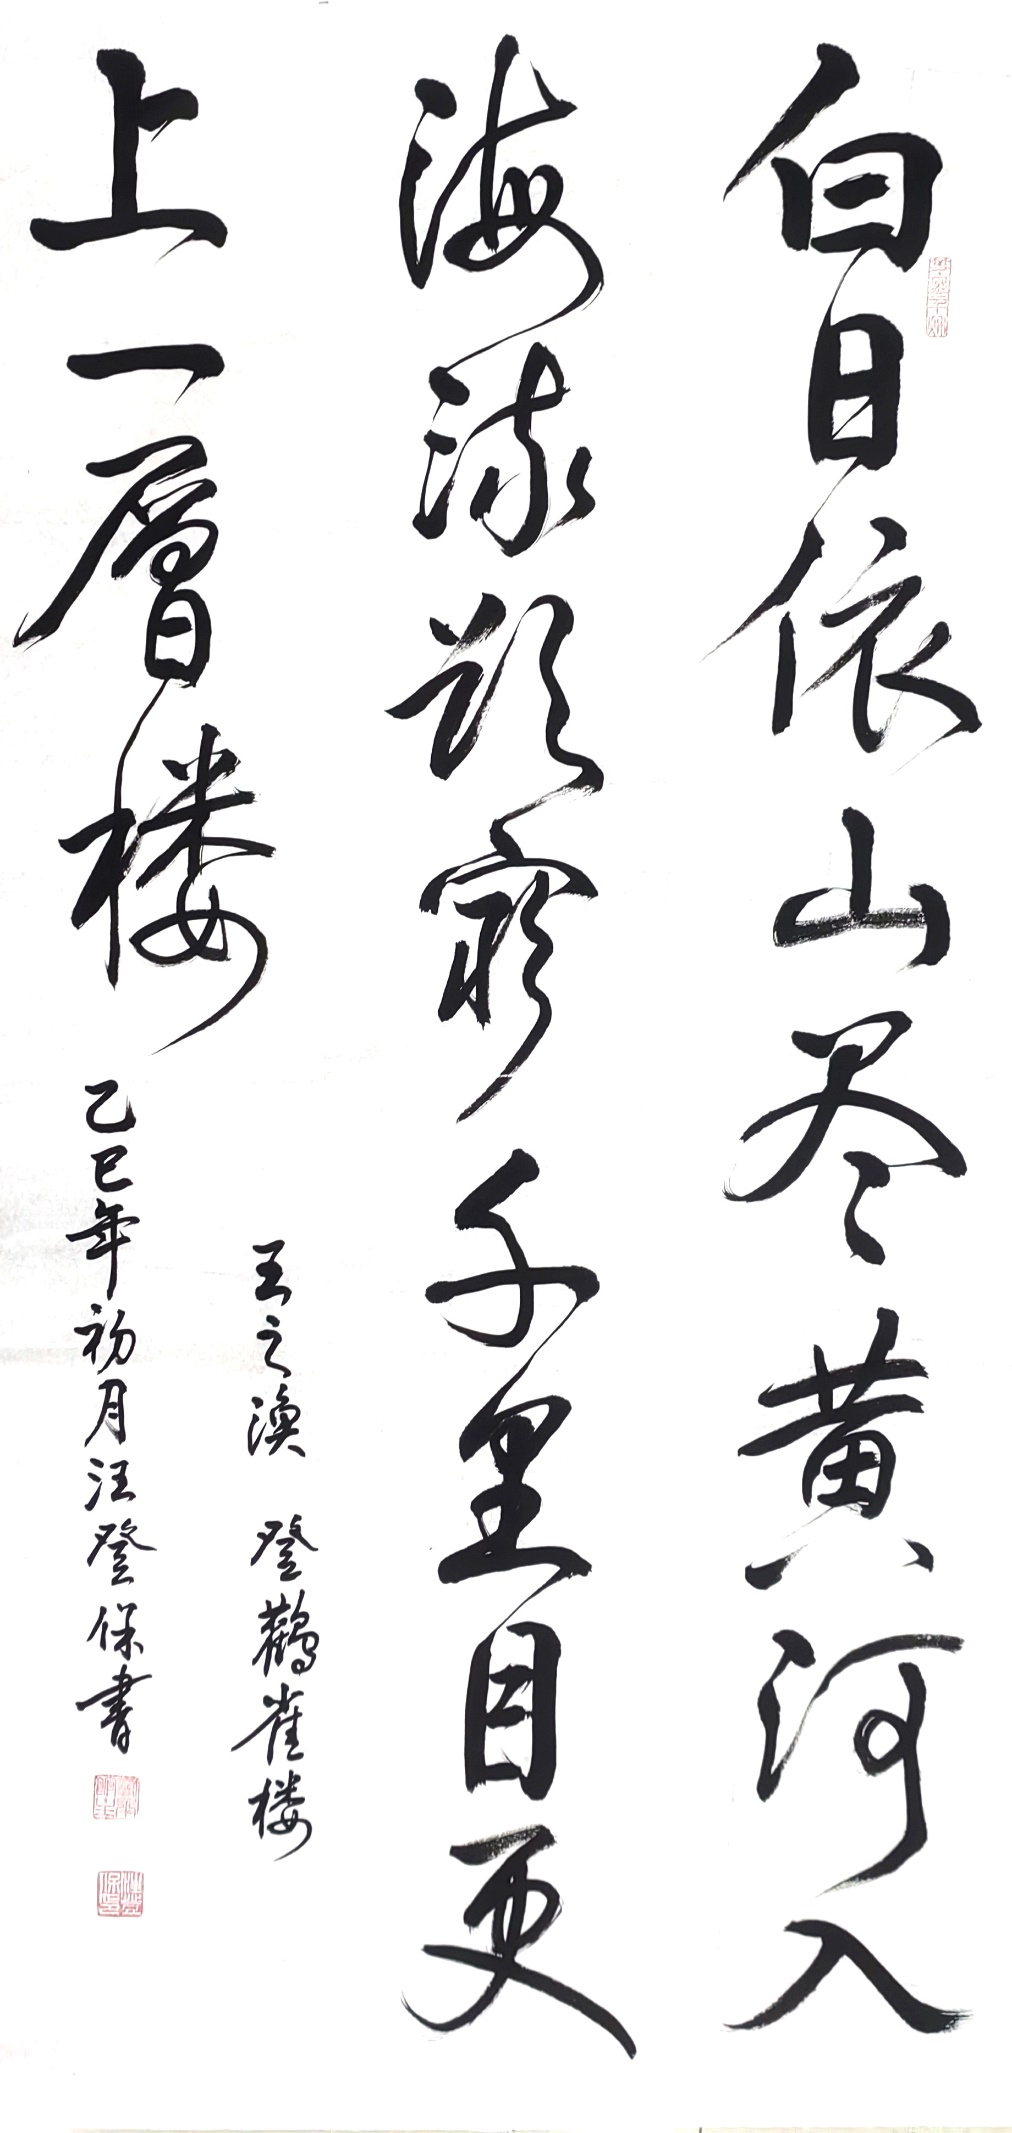 白日依山尽黄河入
海流欲窮千里目更
上一層楼
王之渙 登鸛雀楼
乙巳年初月汪登保書